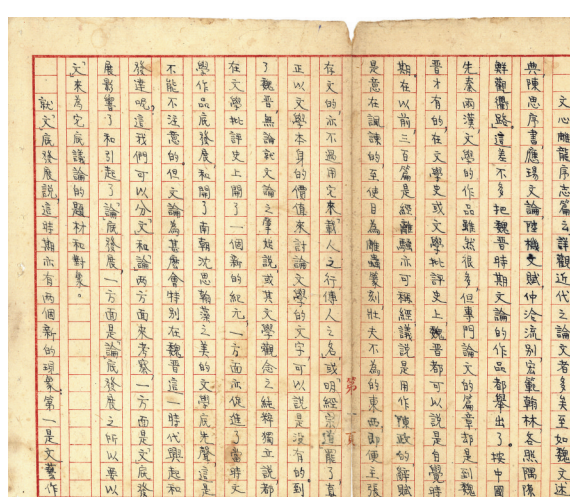 文心雕龍序志篇云詳觀近代之論文者多矣至如魏文述
典陳思序書應瑒文論陸機文賦仲洽流別宏範翰林各照隅隙
鮮觀衢路這差不多把魏晉時期文論的作品都舉出了按中國
先秦兩漢文學的作品雖然很多但專門論文的篇章却是到魏
晉才有的在文學史或文學批評史上魏晉都可以說是自覺時
期在以前三百篇是經離騷亦可稱經議說是用作陳政的辭賦
是意在諷諫的至使目為雕蟲篆刻壯夫不為的東西即便主張
第一頁
存文的亦不過用它來載人之行傳人之名或明經宗道罷了真
正以文學本身的價值來討論文學的文字可以說是沒有的到
了魏晉無論就文論之肇始說或其文學觀念之純粹獨立說都
在文學批評史上開了一個新的紀元一方面亦促進了當時文
學作品底發展和開了南朝沈思翰藻之美的文學底先聲這是
不能不注意的但文論為甚麽會特別在魏晉這一時代興起和
發達呢這我們可以分「文」和「論」兩方面來考察一方面是「文」底發
展影響了和引起了「論」底發展一方面是「論」底發展之所以要以
「文」來為它底議論的題材和對象。
就「文」底發展說這時期亦有兩個新的現象第一是文藝作